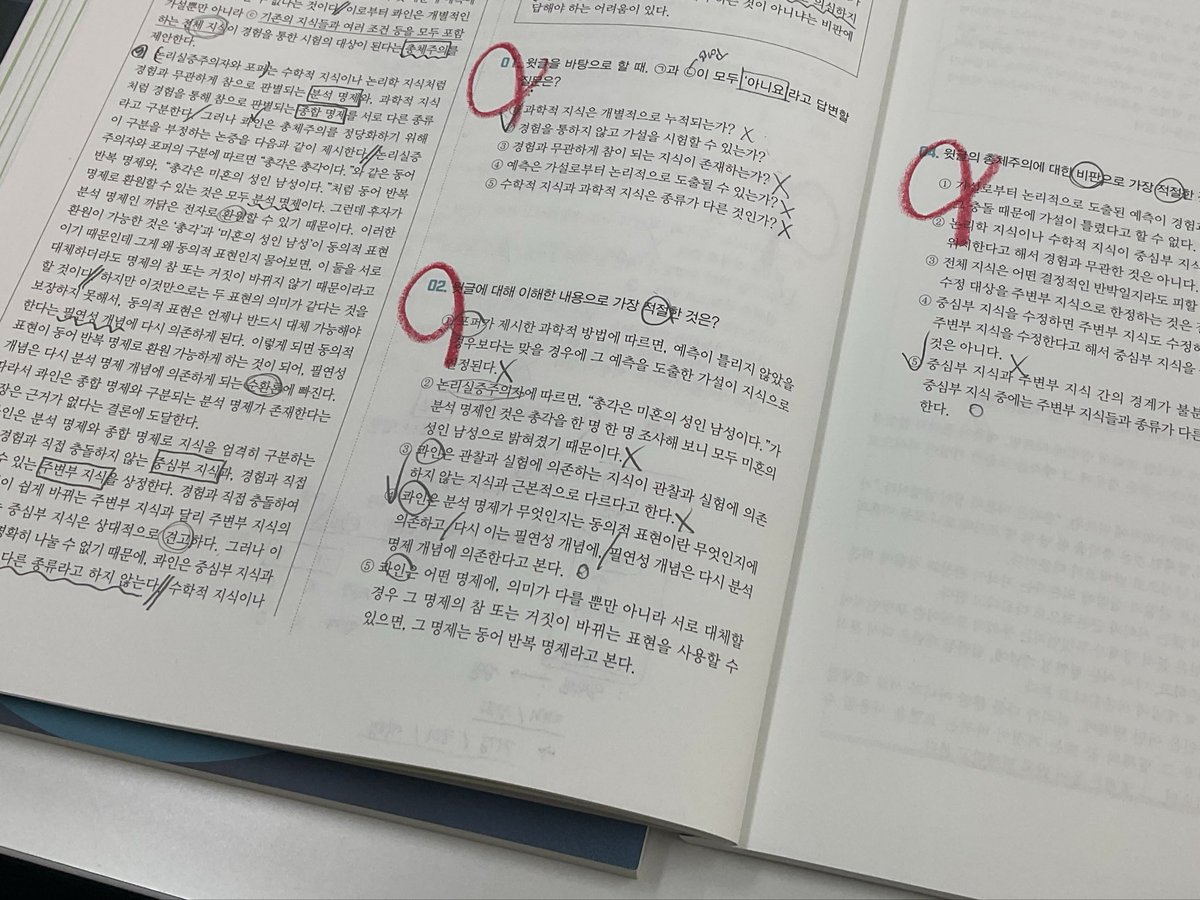 가설뿐만 아니라 ⓒ 기존의 지식들과 여러 조건 등을 모두 포함
하는 전체 지식이 경험을 통한 시험의 대상이 된다는 총체주의를
제안한다.
논리실증주의자와 포퍼는 수학적 지식이나 논리학 지식처럼
경험과 무관하게 참으로 판별되는 분석 명제와, 과학적 지식
처럼 경험을 통해 참으로 판별되는 종합 명제를 서로 다른 종류
라고 구분한다. 그러나 콰인은 총체주의를 정당화하기 위해
이 구분을 부정하는 논증을 다음과 같이 제시한다. 논리실증
주의자와 포퍼의 구분에 따르면 “총각은 총각이다.”와 같은 동어
반복 명제와, “총각은 미혼의 성인 남성이다.”처럼 동어 반복
명제로 환원할 수 있는 것은 모두 분석 명제이다. 그런데 후자가
분석 명제인 까닭은 전자로 환원할 수 있기 때문이다. 이러한
환원이 가능한 것은 ‘총각’과 ‘미혼의 성인 남성’이 동의적 표현
이기 때문인데 그게 왜 동의적 표현인지 물어보면, 이 둘을 서로
대체하더라도 명제의 참 또는 거짓이 바뀌지 않기 때문이라고
할 것이다. 하지만 이것만으로는 두 표현의 의미가 같다는 것을
보장하지 못해서, 동의적 표현은 언제나 반드시 대체 가능해야
한다는 필연성 개념에 다시 의존하게 된다. 이렇게 되면 동의적
표현이 동어 반복 명제로 환원 가능하게 하는 것이 되어, 필연성
개념은 다시 분석 명제 개념에 의존하게 되는 순환론에 빠진다.
따라서 콰인은 종합 명제와 구분되는 분석 명제가 존재한다는
장은 근거가 없다는 결론에 도달한다.
인은 분석 명제와 종합 명제로 지식을 엄격히 구분하는
경험과 직접 충돌하지 않는 중심부 지식과, 경험과 직접
수 있는 주변부 지식을 상정한다. 경험과 직접 충돌하여
이 쉽게 바뀌는 주변부 지식과 달리 주변부 지식의
중심부 지식은 상대적으로 견고하다. 그러나 이
명확히 나눌 수 없기 때문에, 콰인은 중심부 지식과
다른 종류라고 하지 않는다. 수학적 지식이나
하는 것이 아니냐는 비판에
답해야 하는 어려움이 있다.
01. 윗글을 바탕으로 할 때, ㉠과 ㉡이 모두 ‘아니요’라고 답변할
질문은?
과학적 지식은 개별적으로 누적되는가? X
② 경험을 통하지 않고 가설을 시험할 수 있는가?
③ 경험과 무관하게 참이 되는 지식이 존재하는가?
④ 예측은 가설로부터 논리적으로 도출될 수 있는가? X
⑤ 수학적 지식과 과학적 지식은 종류가 다른 것인가? X
02. 윗글에 대해 이해한 내용으로 가장 적절한 것은?
① 포퍼가 제시한 과학적 방법에 따르면, 예측이 틀리지 않았을
경우보다는 맞을 경우에 그 예측을 도출한 가설이 지식으로
인정된다. X
② 논리실증주의자에 따르면, “총각은 미혼의 성인 남성이다.”가
분석 명제인 것은 총각을 한 명 한 명 조사해 보니 모두 미혼의
성인 남성으로 밝혀졌기 때문이다. X
③ 콰인은 관찰과 실험에 의존하는 지식이 관찰과 실험에 의존
하지 않는 지식과 근본적으로 다르다고 한다. X
콰인은 분석 명제가 무엇인지는 동의적 표현이란 무엇인지에
의존하고, 다시 이는 필연성 개념에, 필연성 개념은 다시 분석
명제 개념에 의존한다고 본다. O
⑤ 콰인은 어떤 명제에, 의미가 다를 뿐만 아니라 서로 대체할
경우 그 명제의 참 또는 거짓이 바뀌는 표현을 사용할 수
있으면, 그 명제는 동어 반복 명제라고 본다.
04. 윗글의 총체주의에 대한 비판으로 가장 적절한
① 가설로부터 논리적으로 도출된 예측이 경험과
충돌 때문에 가설이 틀렸다고 할 수 없다.
② 논리학 지식이나 수학적 지식이 중심부 지식
위치한다고 해서 경험과 무관한 것은 아니다.
③ 전체 지식은 어떤 결정적인 반박일지라도 피할
수정 대상을 주변부 지식으로 한정하는 것은
④ 중심부 지식을 수정하면 주변부 지식도 수정해
주변부 지식을 수정한다고 해서 중심부 지식을
것은 아니다. X
⑤ 중심부 지식과 주변부 지식 간의 경계가 불분
중심부 지식 중에는 주변부 지식들과 종류가 다른
한다. O